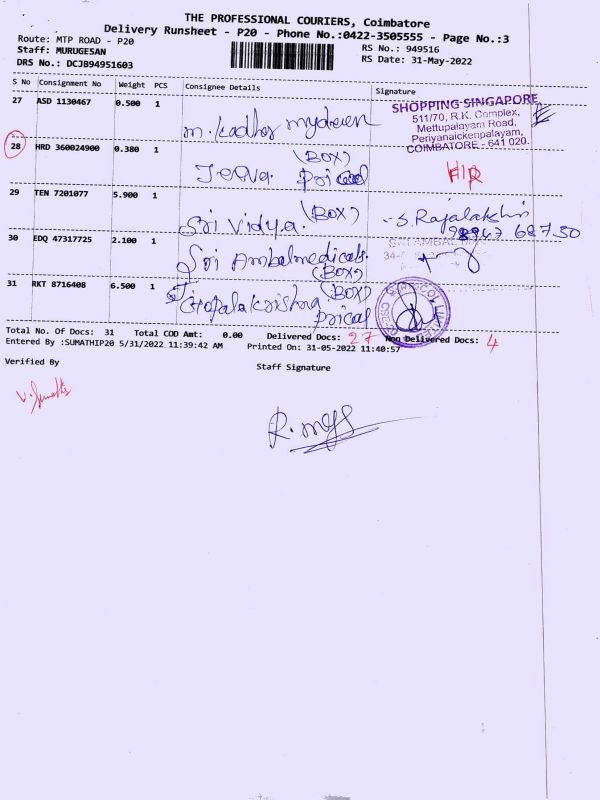 THE PROFESSIONAL COURIERS, Coimbatore
Delivery Runsheet - P20 - Phone No.:0422-3505555 - Page No.:3
Route: MTP ROAD - P20
RS No.: 949516
Staff: MURUGESAN
RS Date: 31-May-2022
DRS No.: DCJB94951603
S No Consignment No Weight PCS Consignee Details Signature
27 ASD 1130467 0.500 1
m. kadhar mydeen
SHOPPING SINGAPORE
511/70, R.K. Complex,
Mettupalayam Road,
Periyanaickenpalayam,
COIMBATORE - 641 020.
28 HRD 360024900 0.380 1
(BOX)
Jeeva
29 TEN 7201077 5.900 1
Sri Vidya. (BOX)
S. Rajalakshmi
30 EDQ 47317725 2.100 1
SRI AMBAL
Sri Ambalmedicals.
(BOX)
31 RKT 8716408 6.500 1
(BOX)
Gopalakrishna
Prical
Total No. Of Docs: 31 Total COD Amt: 0.00 Delivered Docs: 27 Non Delivered Docs: 4
Entered By :SUMATHIP20 5/31/2022 11:39:42 AM Printed On: 31-05-2022 11:40:57
Verified By Staff Signature